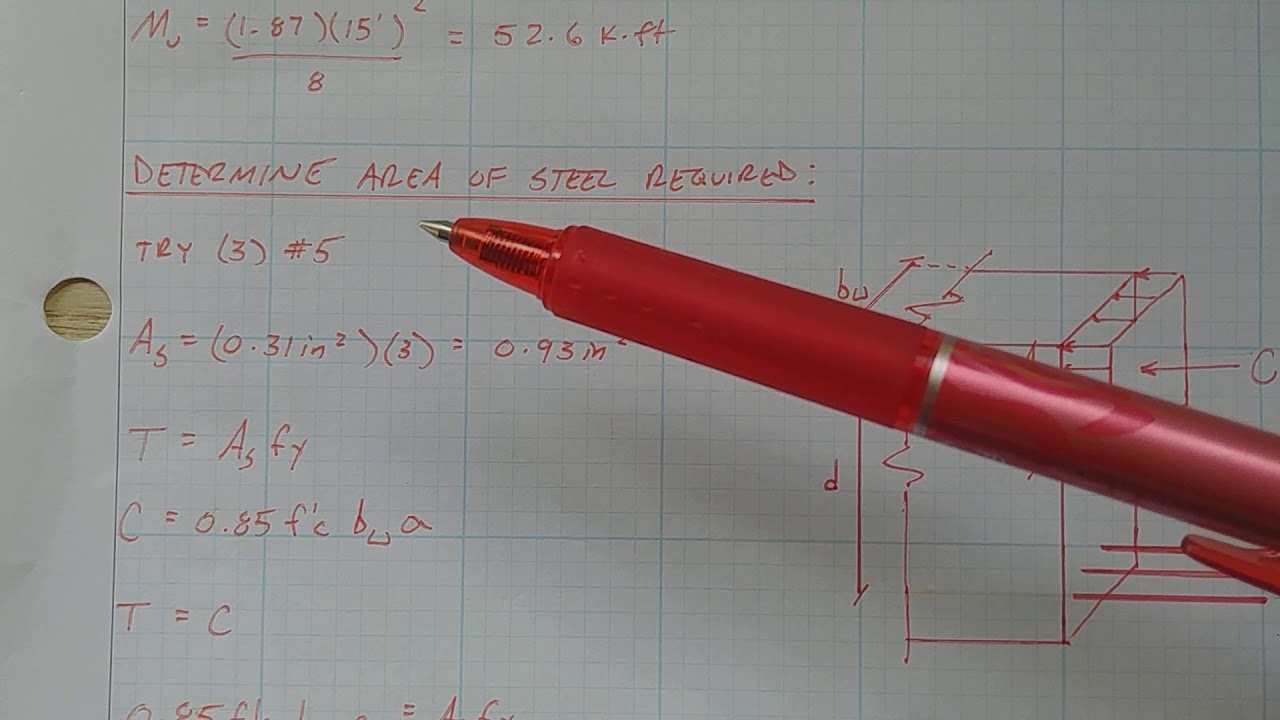 Mu = (1.87)(15')² = 52.6 K.ft
8
DETERMINE AREA OF STEEL REQUIRED:
TRY (3) #5
As = (0.31 in²)(3) = 0.93 in²
T = As fy
C = 0.85 f'c bw a
T = C
bw
d
C